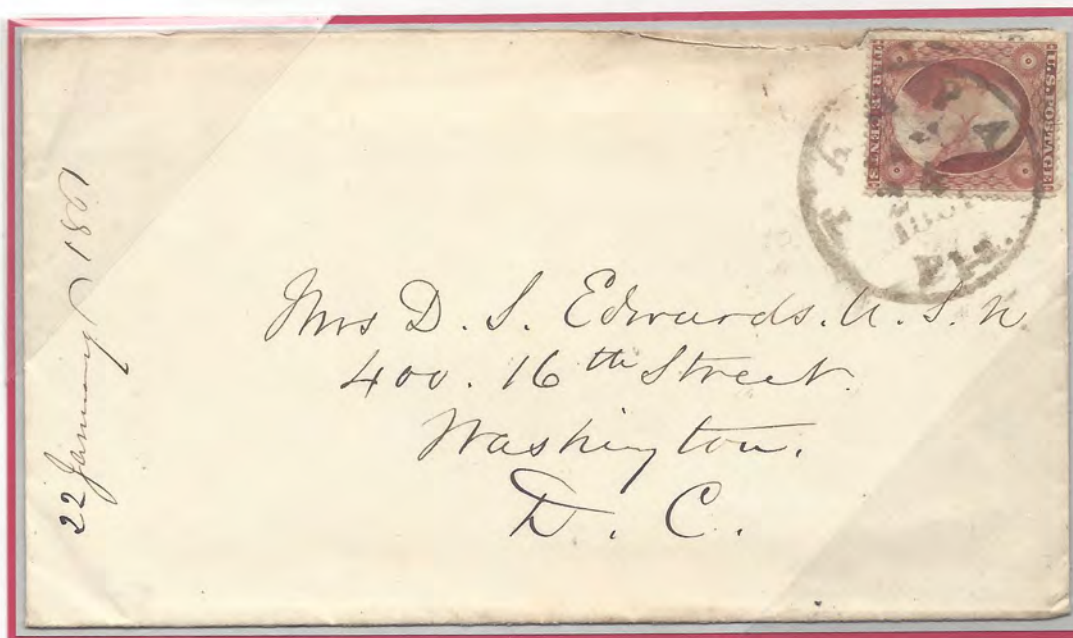 U.S. POSTAGE
THREE CENTS
TAMPA
Fla.
22 January 1861
Mrs D. S. Edwards. U. S. N
400. 16th Street.
Washington.
D. C.